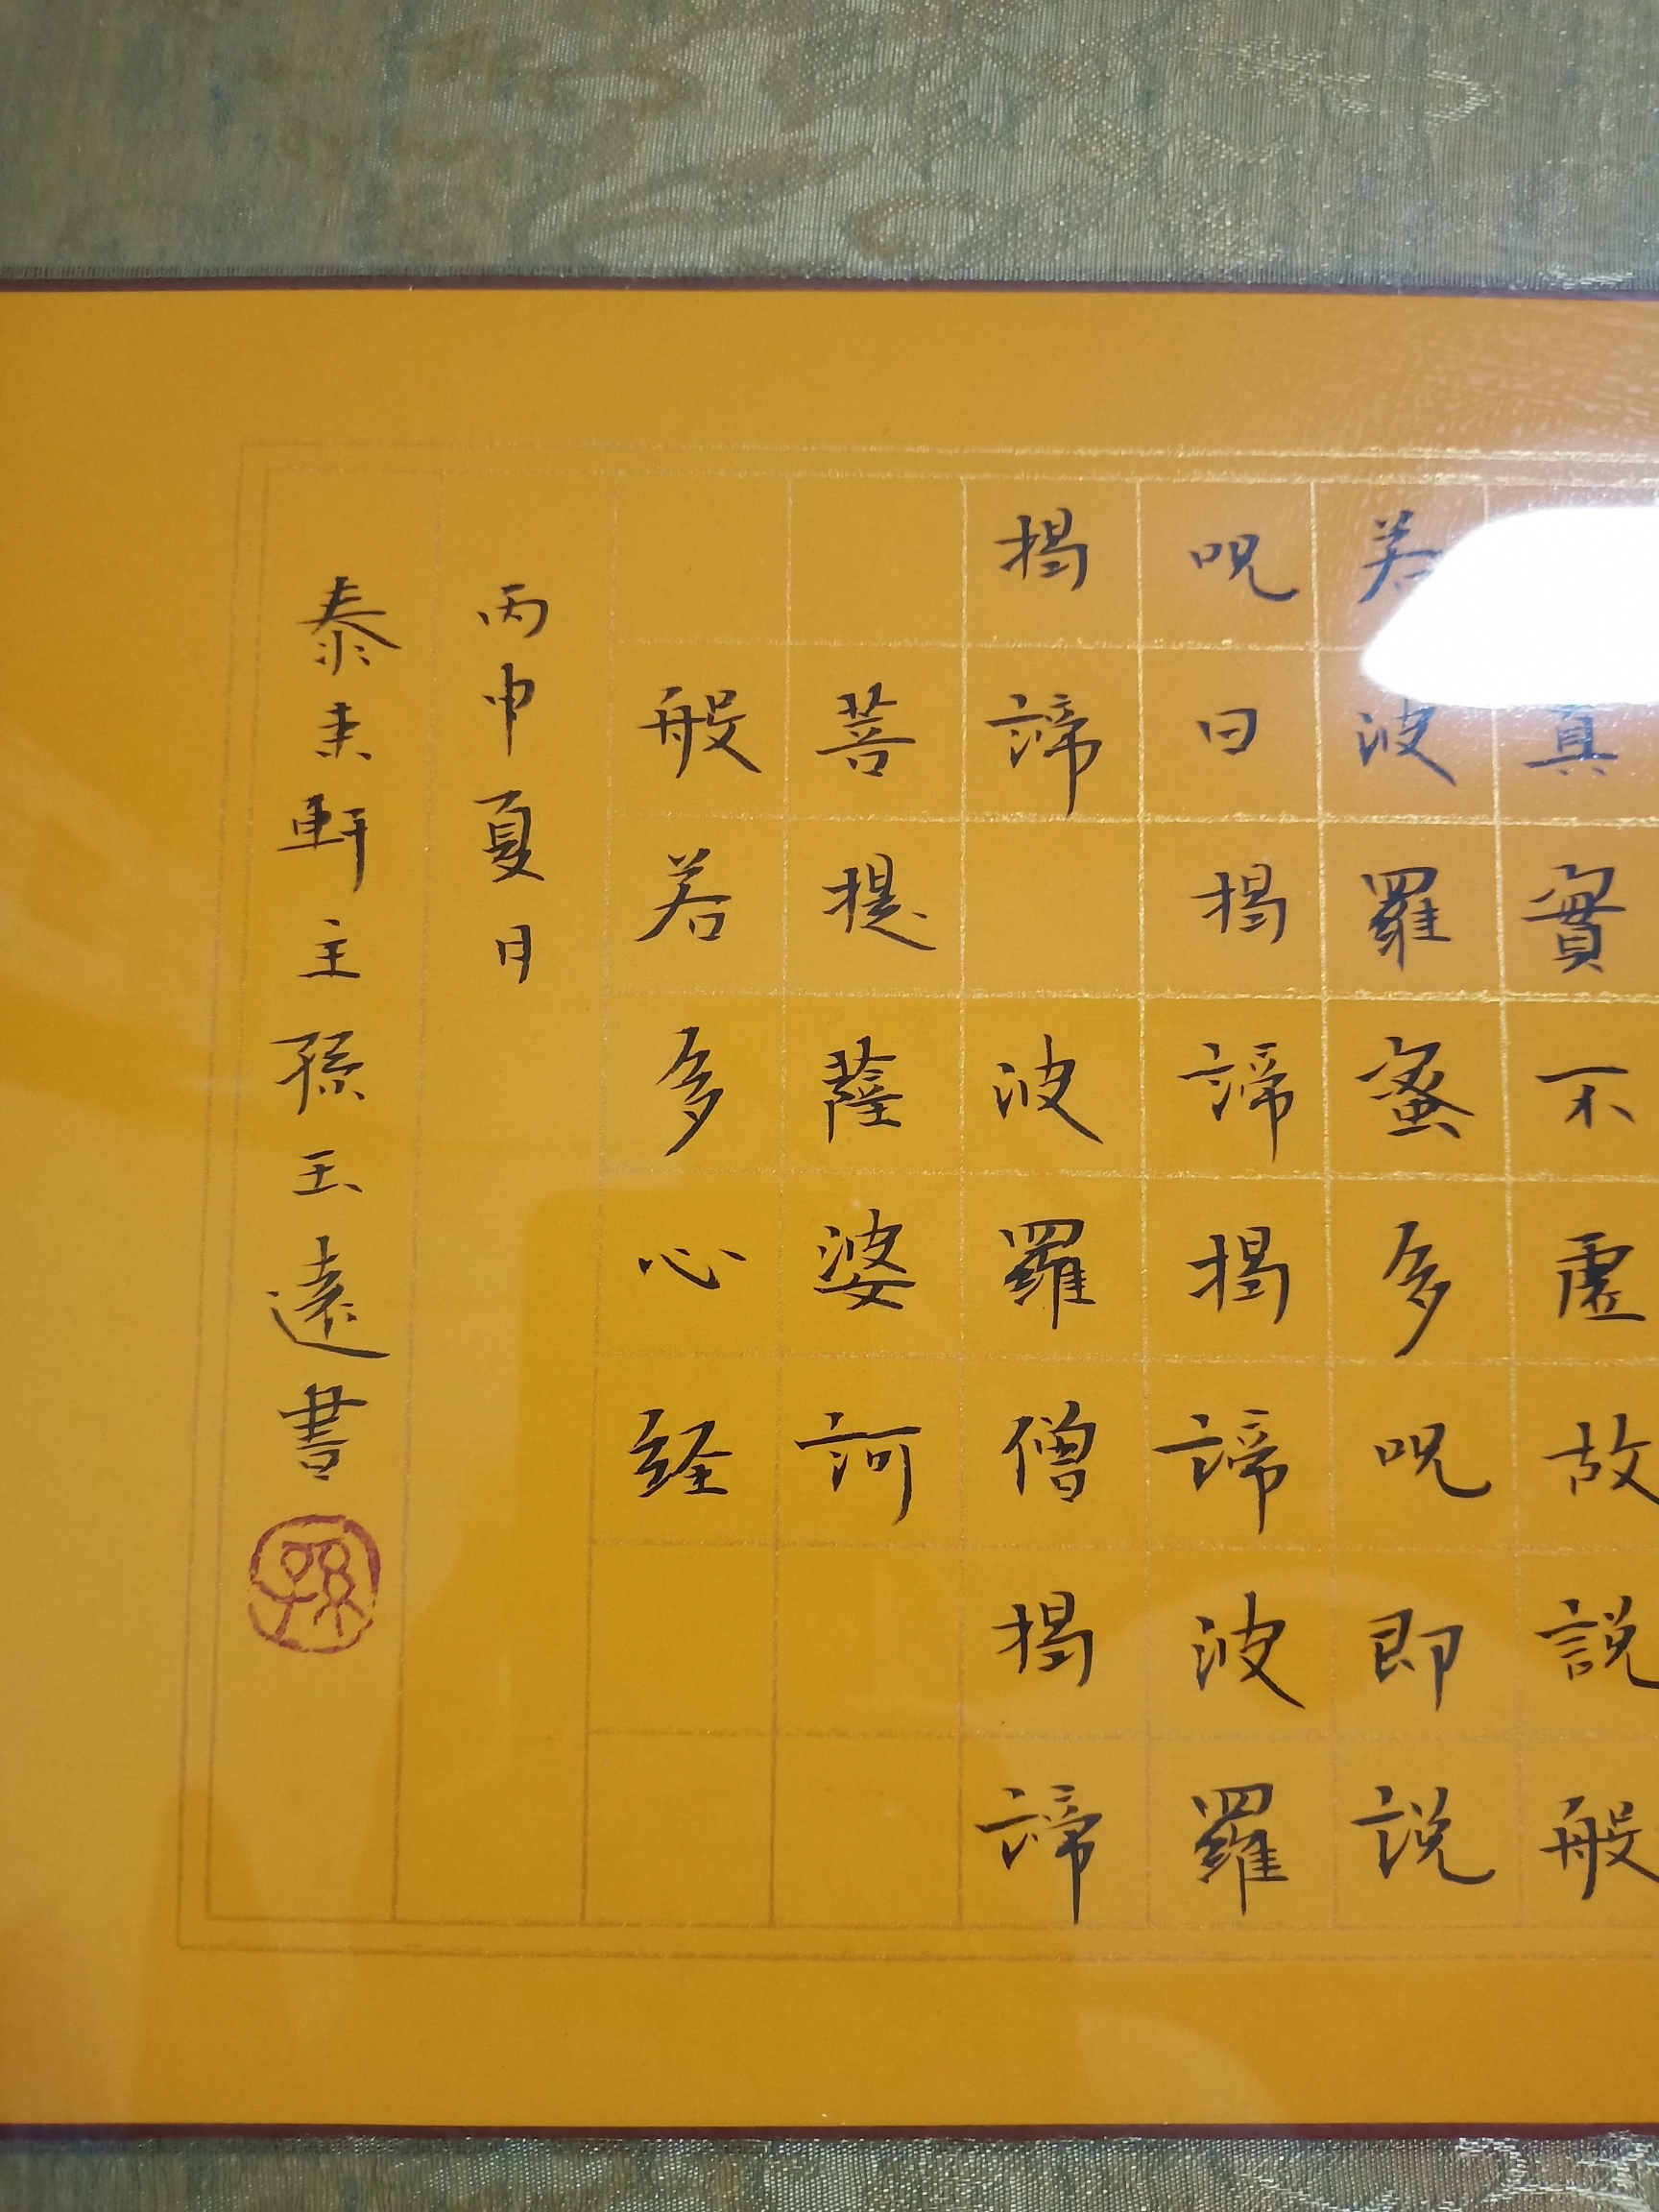 真實不虛故説般
若波羅蜜多呪即説
呪曰揭諦揭諦波羅
揭諦波羅僧揭諦
菩提薩婆訶
般若多心経
丙申夏月
泰来軒主孫玉遠書
孫